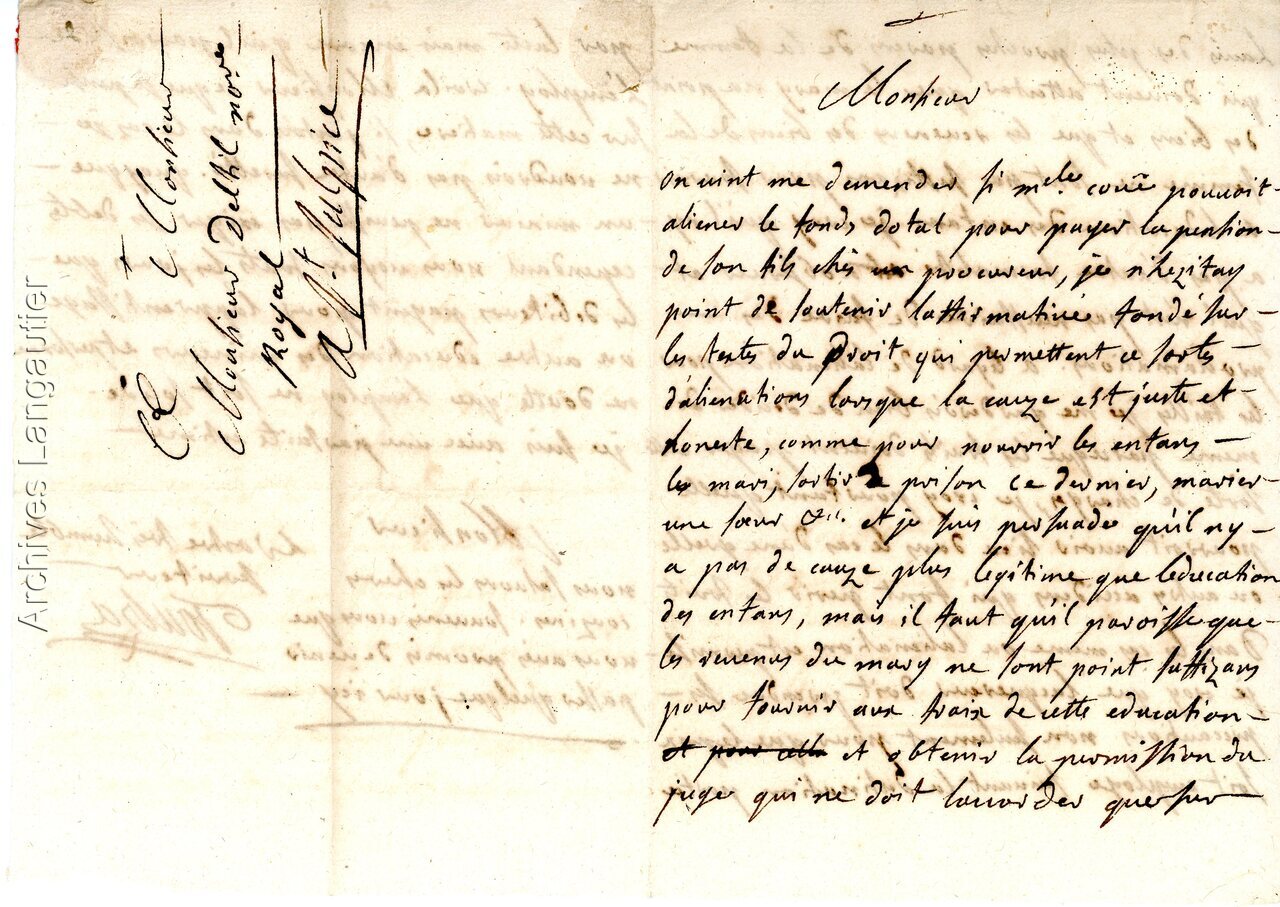 Monsieur
on vint me demender si m.elle couë pouvoit
aliener le fonds dotal pour payer la pention
de son fils chés un procureur, je n'hezitay
point de soutenir laffirmative fondé sur
les textes du Droit qui permettent ce sortes
d'alienations lorsque la cauze est juste et
honeste, comme pour nourrir les enfans
le mari, sortir de prison ce dernier, marier
une sœur &c. et je suis persuadé qu'il ny
a pas de cauze plus legitime que leducation
des enfans, mais il faut qu'il paroisse que
les revenus du mary ne sont point suffizans
pour fournir aux fraix de cette education
et pour cella et obtenir la permission du
juge qui ne doit laccorder que sur
A Monsieur
Monsieur Deltil no.re
Royal
a S.t Sulpice
Archives Langautier